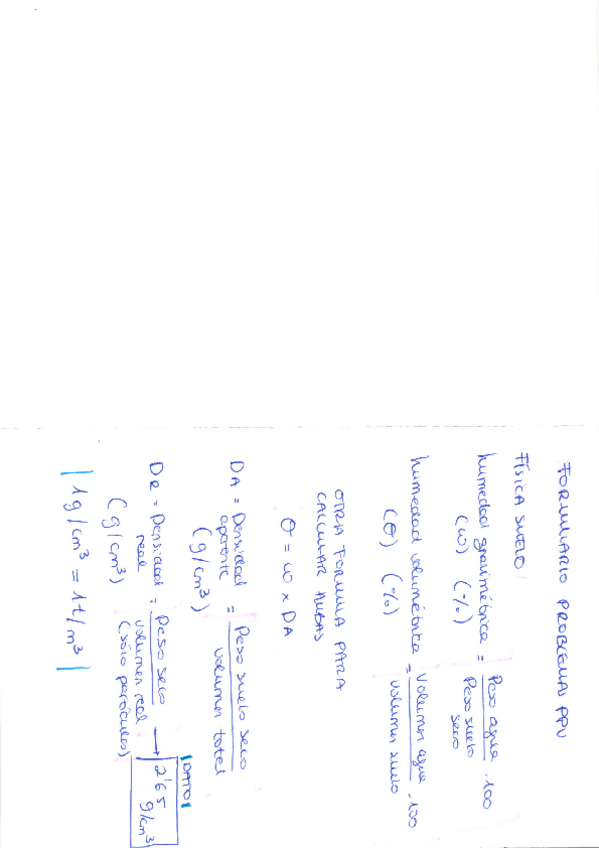 FORMULARIO PROBLEMAS PPV
FÍSICA SUELO
humedad gravimétrica = Peso agua / Peso suelo seco · 100
(ω) (%)
humedad volumétrica = Volumen agua / volumen suelo · 100
(θ) (%)
OTRA FORMULA PARA
CALCULAR AMBAS
θ = ω x DA
DA = Densidad aparente = Peso suelo seco / volumen total
(g/cm³)
DR = Densidad real = Peso seco / volumen real (sólo partículas) → 2'65 g/cm³
(g/cm³)
|DATO|
| 1g/cm³ = 1t/m³ |